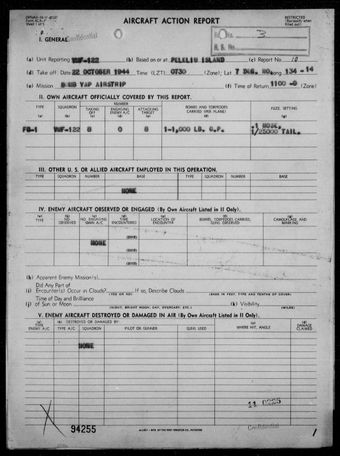 AIRCRAFT ACTION REPORT
RESTRICTED
I. GENERAL
Confidential
No. 3
(a) Unit Reporting VMF-122 (b) Based on or at PELELIU ISLAND (c) Report No. 10
(d) Take off: Date 22 OCTOBER 1944 Time (LZT) 0730 (Zone); Lat 7 DEG. NO. Long. 134-14
(e) Mission BOMB YAP AIRSTRIP (f) Time of Return 1100 (Zone)
II. OWN AIRCRAFT OFFICIALLY COVERED BY THIS REPORT.
TYPE SQUADRON NUMBER
TAKING OFF ENGAGING ENEMY A/C ATTACKING TARGET BOMBS AND TORPEDOES CARRIED (PER PLANE) FUZE, SETTING
FG-1 VMF-122 8 0 8 1-1,000 LB. G.P. .1 NOSE, 1/25000 TAIL.
III. OTHER U. S. OR ALLIED AIRCRAFT EMPLOYED IN THIS OPERATION.
TYPE SQUADRON NUMBER BASE TYPE SQUADRON NUMBER BASE
NONE
IV. ENEMY AIRCRAFT OBSERVED OR ENGAGED (By Own Aircraft Listed in II Only).
NONE
(h) Apparent Enemy Mission(s)
Did Any Part of
(i) Encounter(s) Occur in Clouds? (YES OR NO) If so, Describe Clouds
Time of Day and Brilliance
(j) of Sun or Moon (k) Visibility (MILES)
V. ENEMY AIRCRAFT DESTROYED OR DAMAGED IN AIR (By Own Aircraft Listed in II Only).
(b) DESTROYED OR DAMAGED BY:
TYPE ENEMY A/C TYPE A/C SQUADRON PILOT OR GUNNER GUNS USED WHERE HIT, ANGLE DAMAGE CLAIMED
NONE
94255
Confidential
1